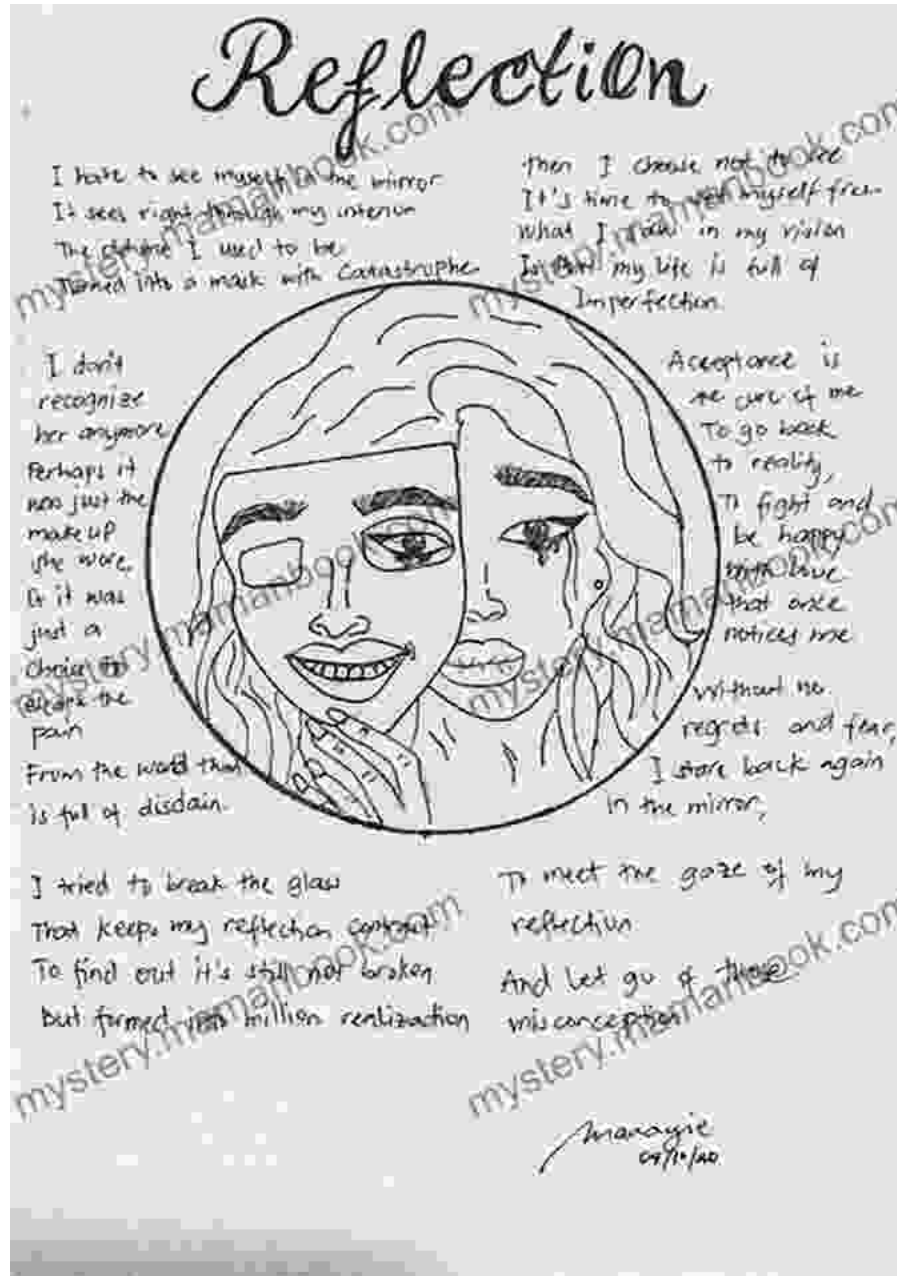 Reflection
I hate to see myself in the mirror
It sees right through my interior
The I used to be
Turned into a mask with Catastrophe
I don't
recognize
her anymore
Perhaps it
was just the
make up
she wore,
Or it was
just a
choice to
escape the
pain
From the world that
is full of disdain.
I tried to break the glass
That keeps my reflection
To find out it's still not broken
But formed into million realization
then I choose not to see
It's time to set myself free
What I in my vision
my life is full of
Imperfection.
Acceptance is
the cure of me
To go back
to reality,
To fight and
be happy
with love
that once
notices me
Without no
regrets and fear,
I stare back again
in the mirror,
To meet the gaze of my
reflection
And let go of those
misconception
manayie
mystery.mamanbook.com
mystery.mamanbook.com
mystery.mamanbook.com
mystery.mamanbook.com
mystery.mamanbook.com
mystery.mamanbook.com